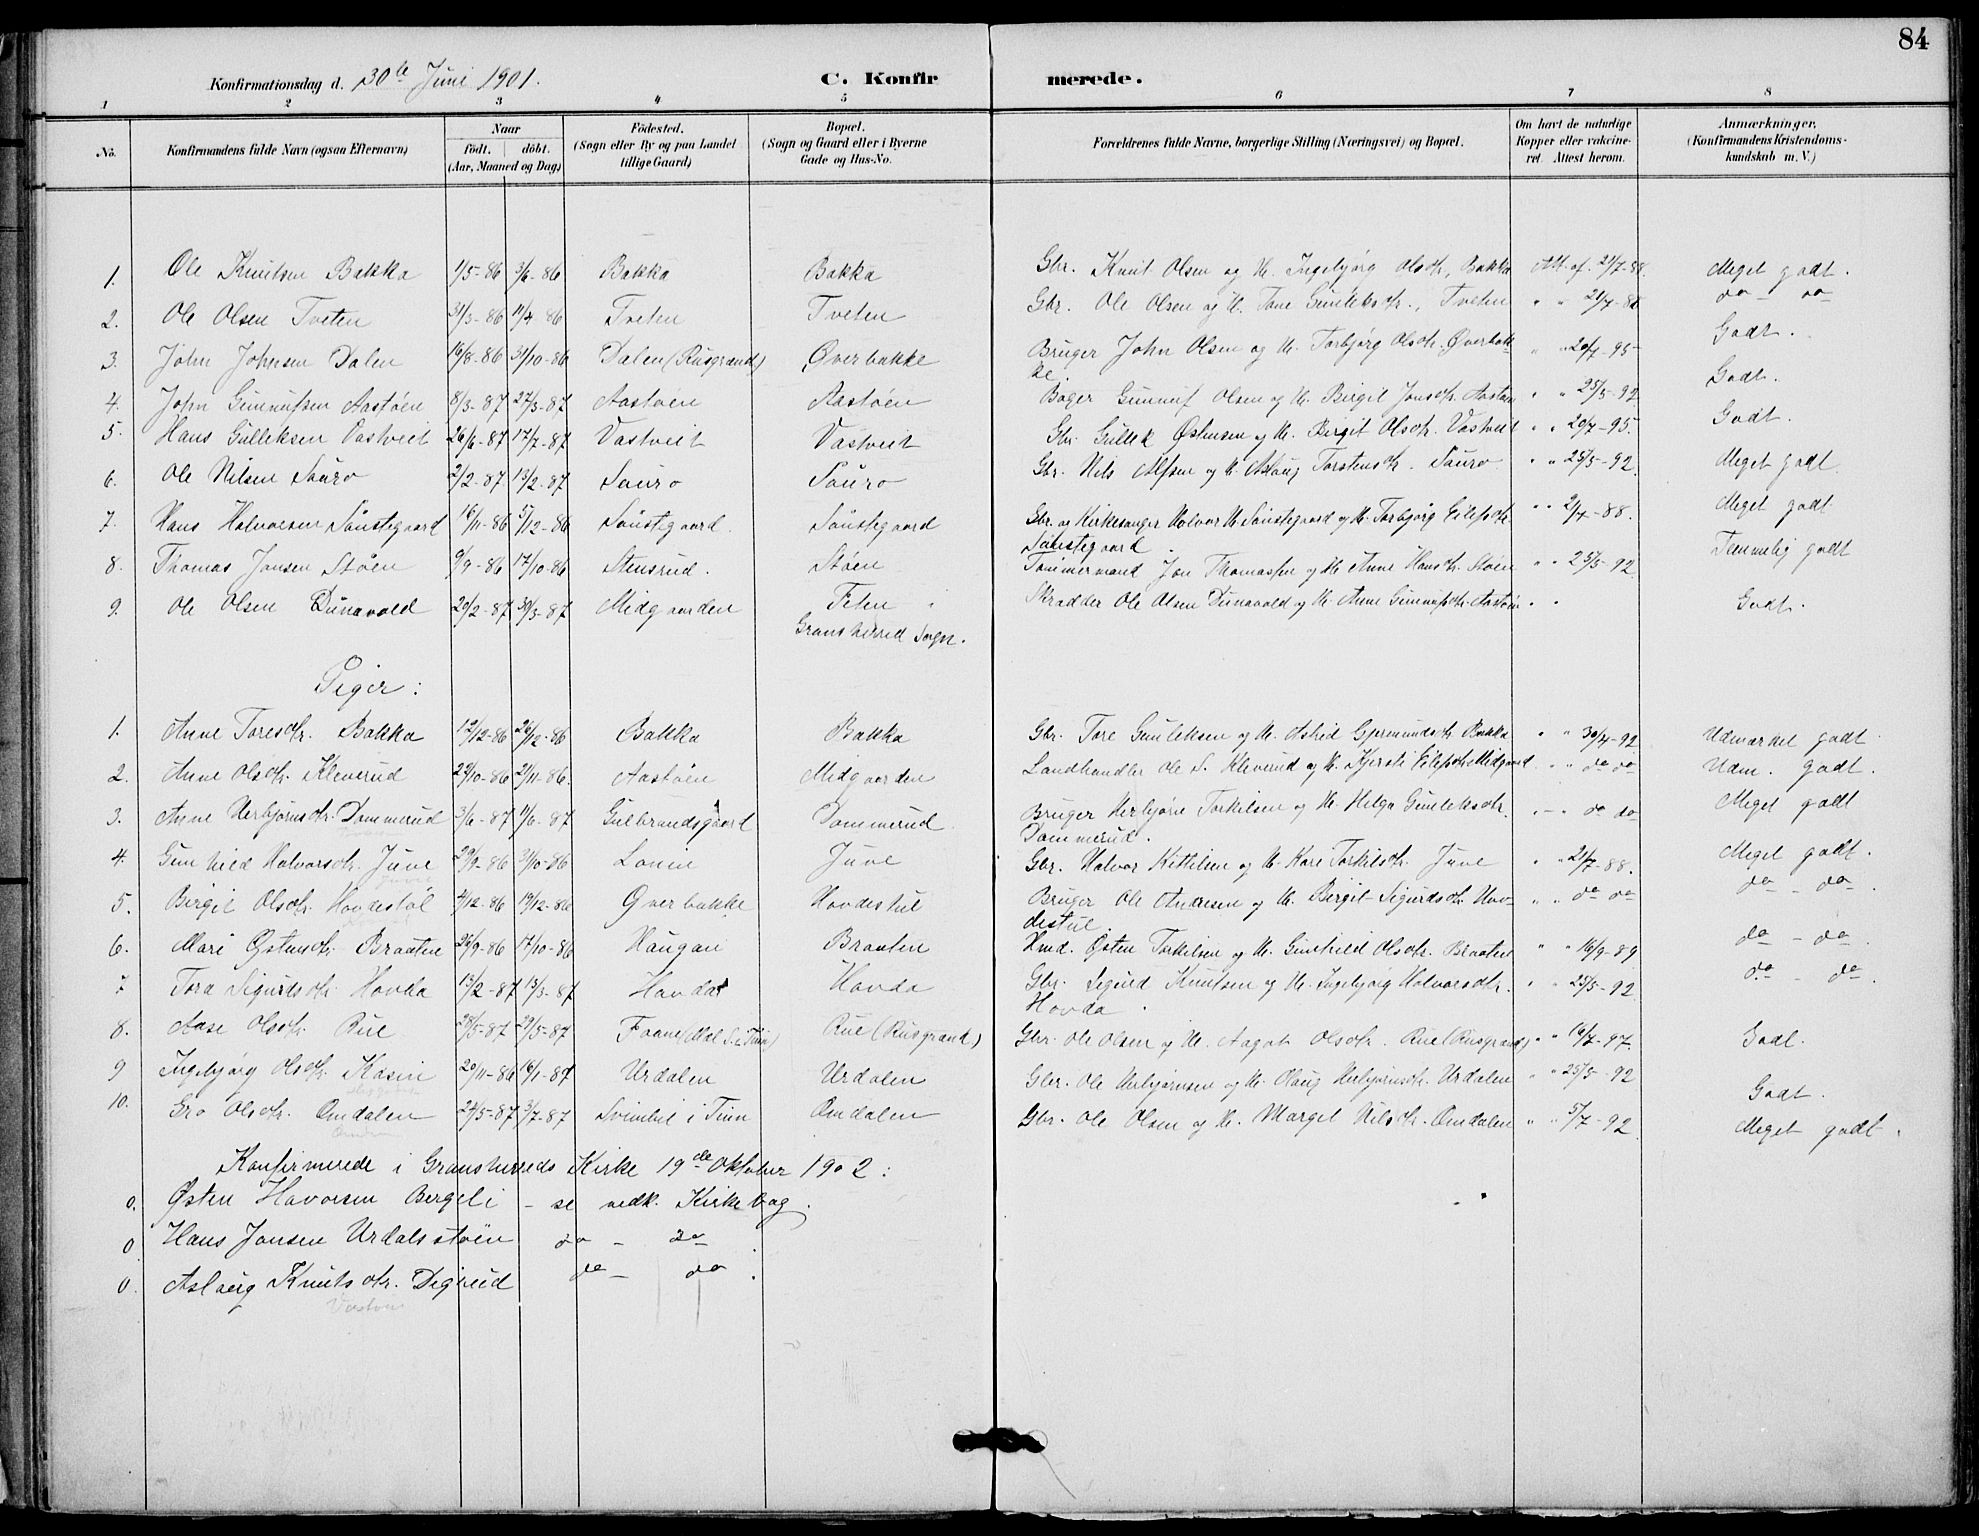 84
Konfirmationsdag d. 30te Juni 1901.
C. Konfirmerede.
1 2 3 4 5 6 7 8
No. Konfirmandens fulde Navn (ogsaa Efternavn) Naar födt. döbt. (Aar, Maaned og Dag) Födested. (Sogn eller By og paa Landet tillige Gaard) Bopæl. (Sogn og Gaard eller i Byerne Gade og Hus-No. Forældrenes fulde Navne, borgerlige Stilling (Næringsvei) og Bopæl. Om havt de naturlige Kopper eller vaccineret. Attest herom. Anmærkninger, (Konfirmandens Kristendomskundskab m. V.)
1. Ole Knutsen Bakka 1/5-86 3/6-86 Bakka Bakka Gbr. Knut Olsen og H. Ingebjørg Olsdtr, Bakka Att. af. 21/7-88. Meget godt.
2. Ole Olsen Tveten 31/3-86 11/4-86 Tveten Tveten Gbr. Ole Olsen og H. Tone Gunleksdtr., Tveten " " 21/7-88 do - do
3. John Johnsen Dalen 16/8-86 31/10-86 Dalen (Rusgrand) Øverbakke Bruger John Olsen og H. Torbjørg Olsdtr. Øverbakke. " " 20/7-95 Godt.
4. John Gunnufsen Aastøen 8/3-87 27/3-87 Aastøen Aastøen Bager Gunnuf Olsen og H. Birgit Jonsdtr. Aastøen " " 25/5-92 Godt.
5. Hans Gulleksen Vastveit 26/6-87 17/7-87 Vastveit Vastveit Gbr. Gullek Østensen og H. Birgit Olsdtr. Vastveit " " 20/7-95. Godt.
6. Ole Nilsen Sauro 2/2-87 13/2-87 Sauro Sauro Gbr. Nils Alfsen og H. Aslaug Torstensdtr. Sauro " " 25/5-92. Meget godt
7. Hans Halvorsen Sønstegaard 16/11-86 5/12-86 Sønstegaard. Sønstegaard Gbr. og Kirkesanger Halvor H. Sønstegaard og H. Torbjørg Eilefsdtr. Sønstegaard. " " 2/7-88. Meget godt
8. Thomas Jonsen Støen 9/9-86 17/10-86 Stensrud. Støen Tømmermand Jon Thomassen og H. Anne Hansdtr. Støen " " 25/5-92 Temmelig godt
9. Ole Olsen Dunavold 20/2-87 30/3-87 Midgaarden Feten Gransherred Sogn. Skrædder Ole Olsen Dunavold og H. Anne Gunnufsdtr. Aastøen " " Godt.
Piger:
1. Anne Toresdtr. Bakka 12/12-86 26/12-86 Bakka Bakka Gbr. Tore Gunleksen og H. Astrid Gjermundsdtr. Bakka " " 30/4-92 Udmærket godt
2. Anne Olsdtr. Kleverud 29/10-86 21/11-86. Aastøen Midgaarden Landhandler Ole S. Kleverud og H. Kjersti Eilefsdtr. Midgaard " " do do Udm. godt.
3. Anne Herbjørnsdtr. Dommerud 3/6-87 11/6-87 Gulbrandsgaard Dommerud Bruger Herbjørn Torkilsen og H. Helga Gunleksdtr. Dommerud. " - " do do Meget godt
4. Gunhild Halvorsdtr. Juve 29/9-86 31/10-86 Lonin Juve Gbr. Halvor Kittilsen og H. Kari Torkilsdtr. Juve " " 21/7-88. Meget godt.
5. Birgit Olsdtr. Hovdestøl 4/12-86 19/12-86 Øverbakke Hovdestul Bruger Ole Andresen og H. Birgit Sigurdsdtr. Hovdestul. " " do do do - do.
6. Mari Østensdtr. Braaten 26/9-86 17/10-86 Haugan Braaten Hmd. Østen Torkilsen og H. Gunhild Olsdtr. Braaten " " 16/9-89 do - do.
7. Tora Sigurdsdtr. Hovda 13/2-87 13/3-87 Hovda Hovda Gbr. Sigurd Knutsen og H. Ingebjørg Halvorsdtr. Hovda. " " 25/5-92 do - do.
8. Aase Olsdtr. Rue 28/5-87 29/5-87 Faane (Mæl S. i Tinn) Rue (Rusgrand) Gbr. Ole Olsen og H. Aagot Olsdtr. Rue (Rusgrand) " " 19/7-97. Godt.
9 Ingebjørg Olsdtr. Kasin 20/11-86 16/1-87 Urdalen Urdalen Gbr. Ole Herbjørnsen og H. Olaug Herbjørnsdtr. Urdalen " " 25/5-92 Godt.
10. Gro Olsdtr. Omdalen 24/5-87 3/7-87 Svimbil i Tinn Omdalen Gbr. Ole Olsen og H. Margit Nilsdtr. Omdalen " " 5/7-92. Meget godt.
Konfirmerede i Gransherreds Kirke 19de Oktober 1902:
0. Østen Havorsen Bergeli - se vedk. Kirkebog.
0 Hans Jonsen Urdalsstøen do - do
0. Aslaug Knutsdtr. Digrud do - do.